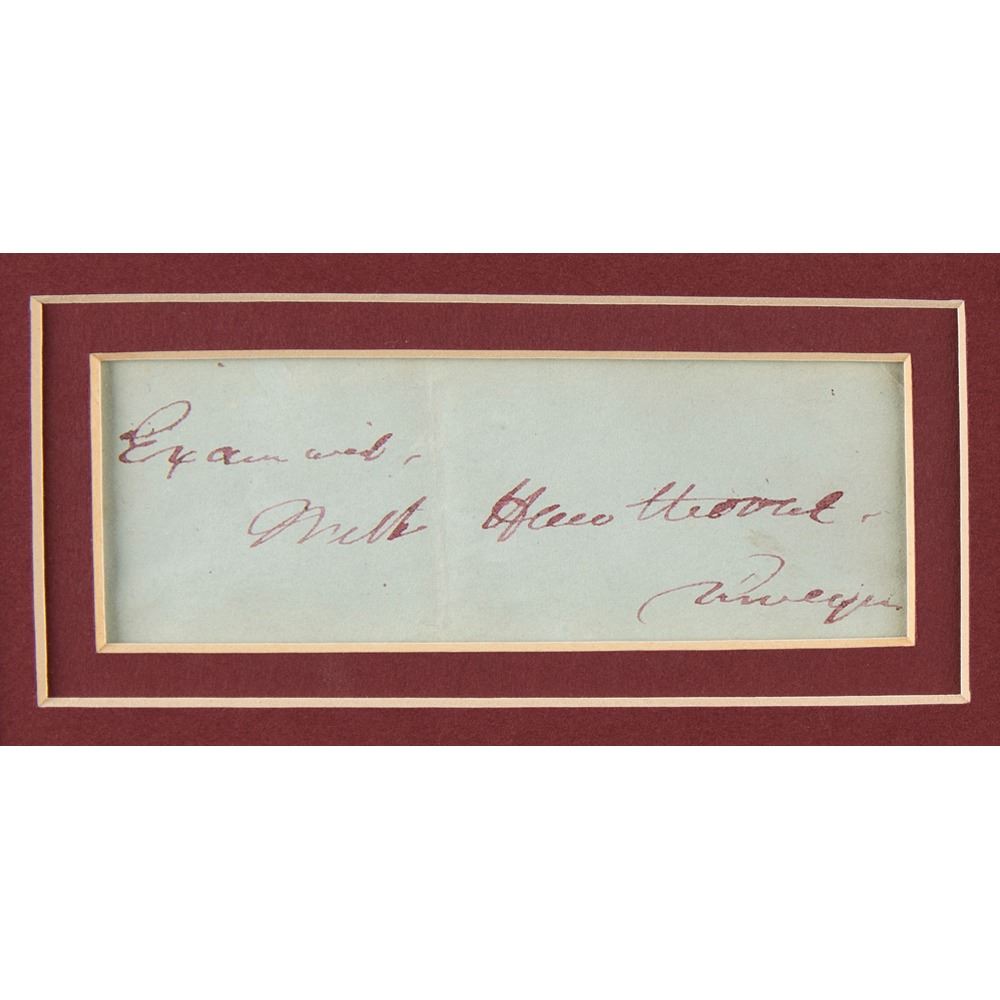 Examined.
Nathl Hawthorne.
Surveyor